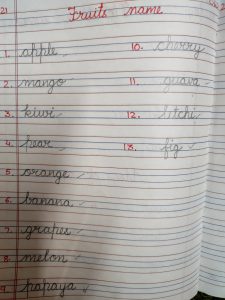 21
Fruits name
1. apple
2. mango
3. kiwi
4. pear
5. orange
6. banana
7. grapes
8. melon
9. papaya
10. cherry
11. guava
12. litchi
13. fig